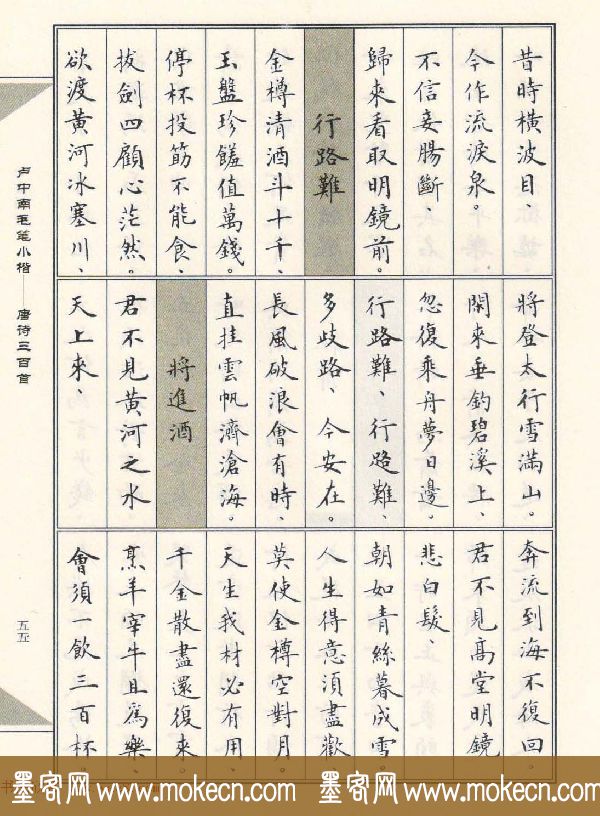 昔時橫波目、
今作流淚泉。
不信妾腸斷
歸來看取明鏡前。
行路難
金樽清酒斗十千、
玉盤珍饈值萬錢。
停杯投筯不能食、
拔劍四顧心茫然。
欲渡黃河冰塞川、
將登太行雪滿山。
閑來垂釣碧溪上、
忽復乘舟夢日邊。
行路難、行路難、
多歧路、今安在。
長風破浪會有時、
直挂雲帆濟滄海。
將進酒
君不見黃河之水
天上來、
奔流到海不復回。
君不見高堂明鏡
悲白髮、
朝如青絲暮成雪。
人生得意須盡歡、
莫使金樽空對月。
天生我材必有用、
千金散盡還復來。
烹羊宰牛且爲樂、
會須一飲三百杯。
卢中南毛笔小楷——唐诗三百首
五五
墨客网 www.mokecn.com 墨客网 www.mokecn.com